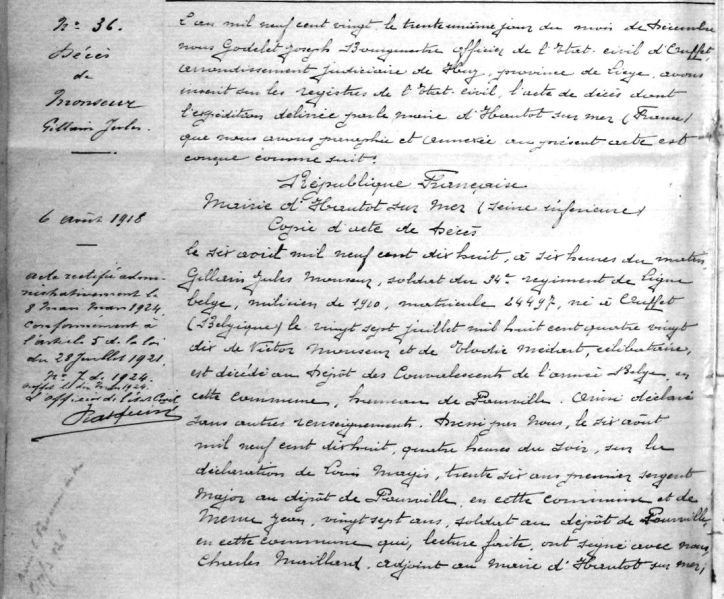 N° 36.
Décès
de
Monseur
Gillain Jules.
6 août 1918
acte rectifié admi-
nistrativement le
8 mars 1924
conformément à
l'article 5 de la loi
du 28 juillet 1921.
N° 7 d. 1924.
L'officier de l'état Civil
L'an mil neuf cent vingt, le trente unième jour du mois de Décembre
nous Godelet Joseph Bourgmestre officier de l'Etat-civil d'Ouffet,
arrondissement judiciaire de Huy, province de Liége, avons
inscrit sur les registres de l'Etat-civil, l'acte de décès dont
l'expédition délivrée par le maire d'Hautot sur mer (France)
que nous avons paraphée et annexée au présent acte est
conçue comme suit:
République Française
Mairie d'Hautot sur Mer (Seine inférieure)
Copie d'acte de Décès
Le six août mil neuf cent dix huit, à six heures du matin,
Gillain Jules Monseur, soldat du 34e régiment de Ligne
belge, milicien de 1910, matricule 24497, né à Ouffet
(Belgique) le vingt sept juillet mil huit cent quatre vingt
dix de Victor Monseur et de Elodie Médart, célibataire,
est décédé au Dépôt des Convalescents de l'armée Belge, en
cette commune, hameau de Pourville. Ainsi déclaré
sans autres renseignements. Dressé par Nous, le six août
mil neuf cent dix huit, quatre heures du soir, sur la
déclaration de Louis Mayis, trente six ans premier sergent
Major au dépôt de Pourville, en cette commune et de
Menne Jean, vingt sept ans, soldat au dépôt de Pourville,
en cette commune qui, lecture faite, ont signé avec nous,
Charles Maillard, adjoint au Maire d'Hautot sur mer,